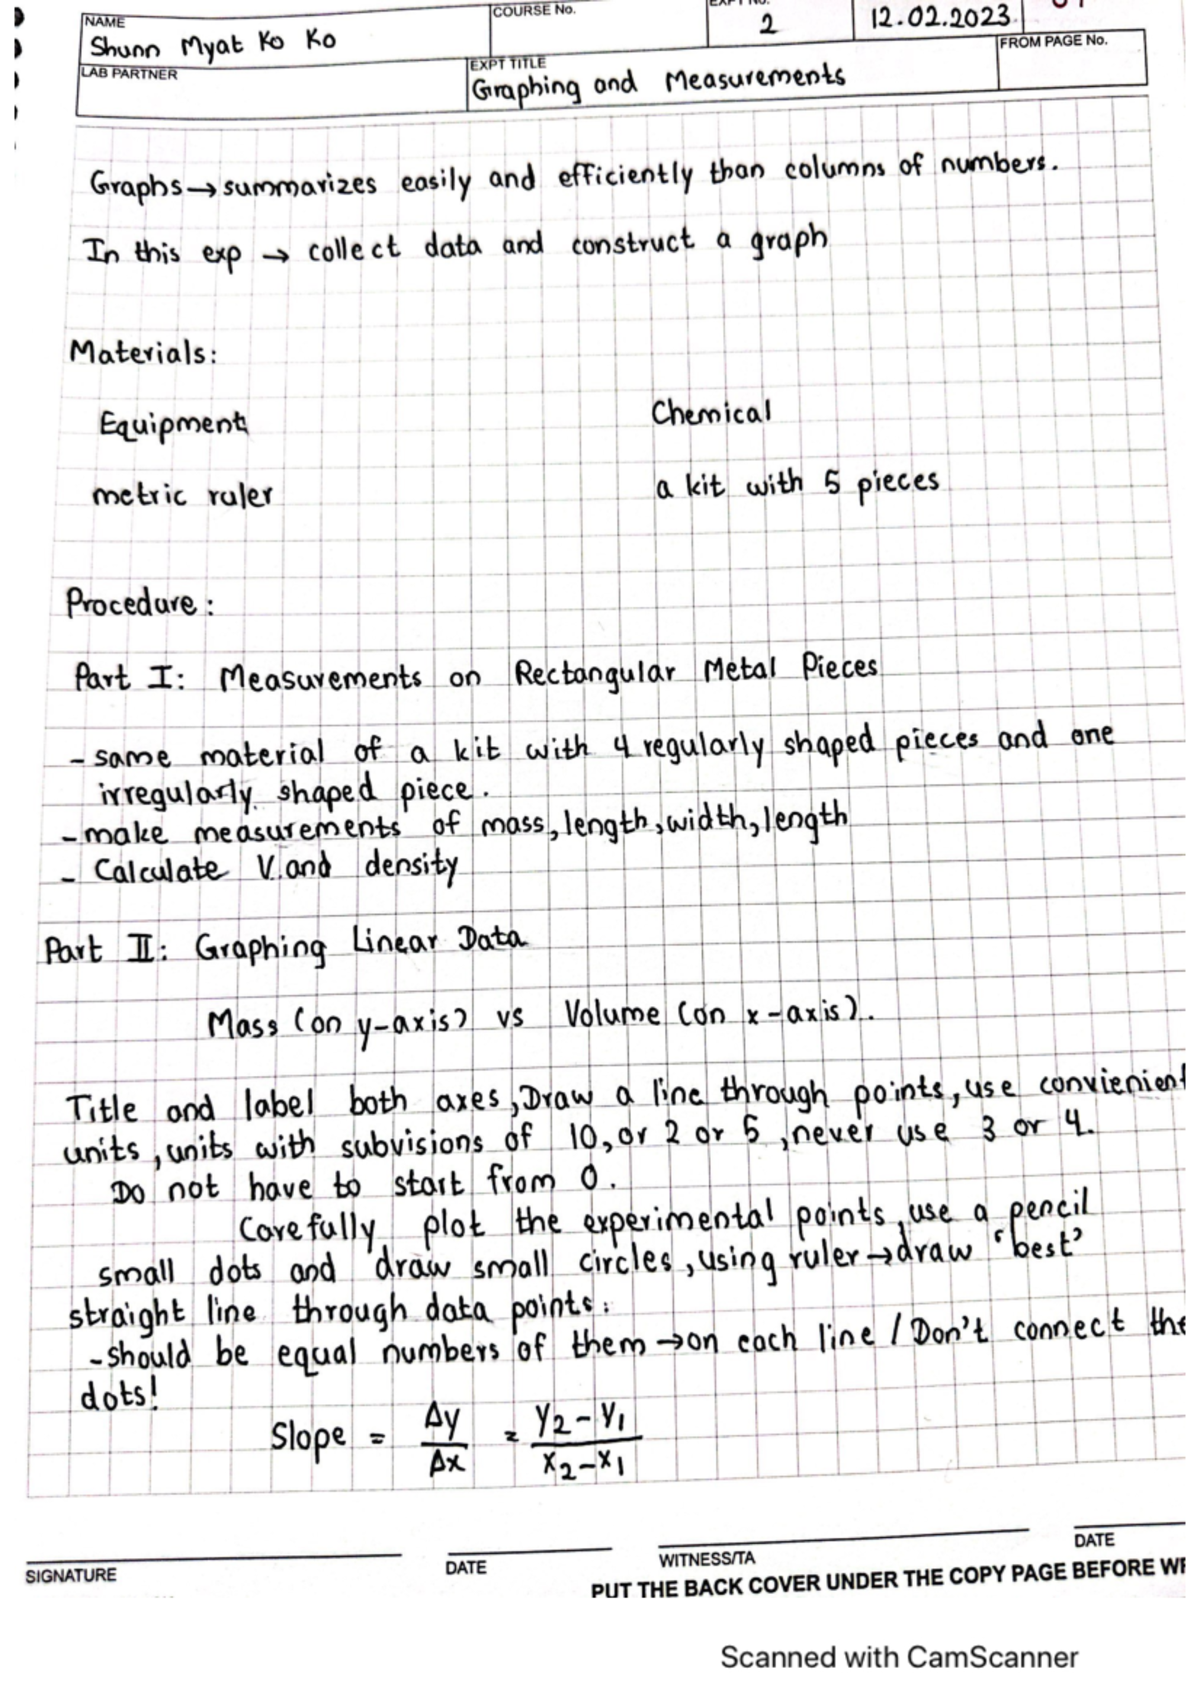 NAME
Shunn Myat Ko Ko
COURSE No.
2
12.02.2023
LAB PARTNER
EXPT TITLE
Graphing and Measurements
FROM PAGE No.
Graphs→summarizes easily and efficiently than columns of numbers.
In this exp → collect data and construct a graph
Materials:
Equipment
Chemical
metric ruler
a kit with 5 pieces
Procedure:
Part I: Measurements on Rectangular Metal Pieces
- same material of a kit with 4 regularly shaped pieces and one
irregularly shaped piece.
- make measurements of mass, length, width, length
- Calculate V.and density
Part II: Graphing Linear Data
Mass (on y-axis) vs Volume (on x-axis).
Title and label both axes, Draw a line through points, use convienient
units, units with subvisions of 10, or 2 or 5, never use 3 or 4.
Do not have to start from 0.
Carefully plot the experimental points, use a pencil
small dots and draw small circles, using ruler→draw 'best'
straight line through data points.
-should be equal numbers of them→on each line / Don't connect the
dots!
Slope = Δy/Δx = y2-y1/x2-x1
SIGNATURE
DATE
WITNESS/TA
DATE
PUT THE BACK COVER UNDER THE COPY PAGE BEFORE
Scanned with CamScanner